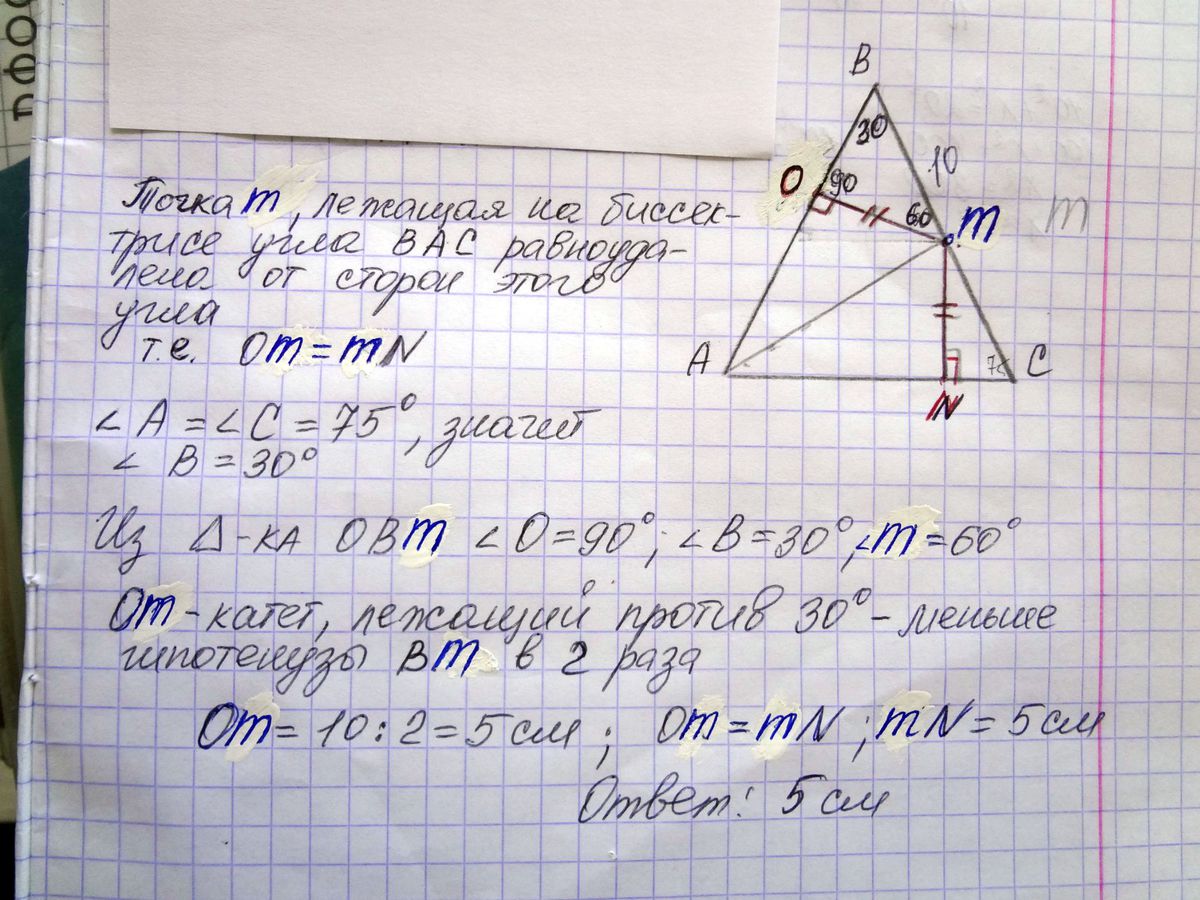 ДФОС
B
30
10
O
90
60
m
m
A
7
C
N
Точка m, лежащая на биссек-
трисе угла BAC равноуда-
лена от сторон этого
угла
т.е. Om = mN
∠A = ∠C = 75°, значит
∠B = 30°
Из Δ-ка OBm ∠O = 90°; ∠B = 30°; ∠m = 60°
Om - катет, лежащий против 30° - меньше
гипотенузы Bm в 2 раза
Om = 10 : 2 = 5 см ; Om = mN ; mN = 5 см
Ответ: 5 см